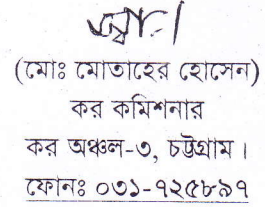 (মোঃ মোতাহের হোসেন)
কর কমিশনার
কর অঞ্চল-৩, চট্টগ্রাম।
ফোনঃ ০৩১-৭২৫৮৯৭